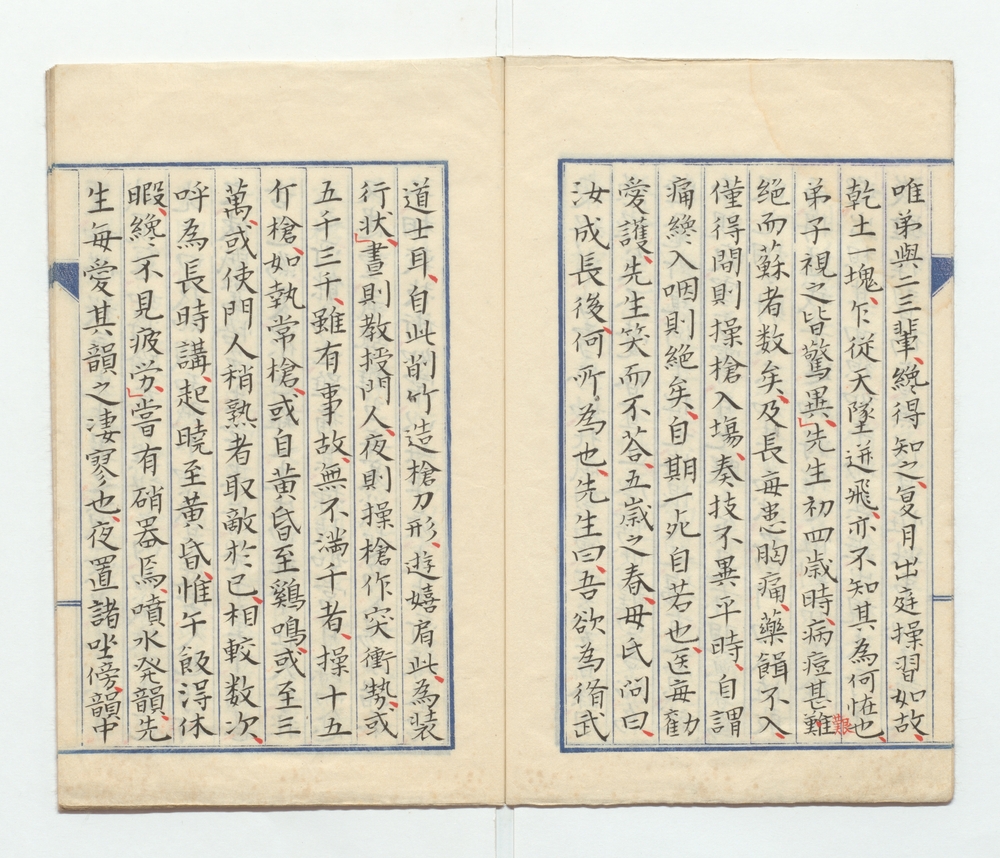 唯弟與二三輩、纔得知之、夏月出庭操習如故、
乾土一塊、乍從天墜迸飛、亦不知其為何怪也、
弟子視之皆驚異、」先生初四歳時、病痘甚難艱
絶而蘇者数矣、及長毎患胸痛、藥餌不入、
僅得間則操槍入塲、奏技不異平時、自謂
痛纔入咽則絶矣、自期一死自若也、医毎勸
愛護、先生笑而不荅、五歳之春、母氏問曰、
汝成長後、何所為也、先生曰、吾欲為脩武
道士耳、自此削竹造槍刀形、遊嬉肩此、為装
行状、」晝則教授門人、夜則操槍作突衝勢、或
五千三千、雖有事故、無不満千者、操十五
斤槍、如執常槍、或自黄昏至鷄鳴、或至三
萬、或使門人稍熟者取敵於已、相較数次、
呼為長時講、起曉至黄昏、惟午飯淂休
暇、纔不見疲労、」嘗有硝器焉、噴水発韻、先
生毎愛其韻之凄寥也、夜置諸坐傍、韻中